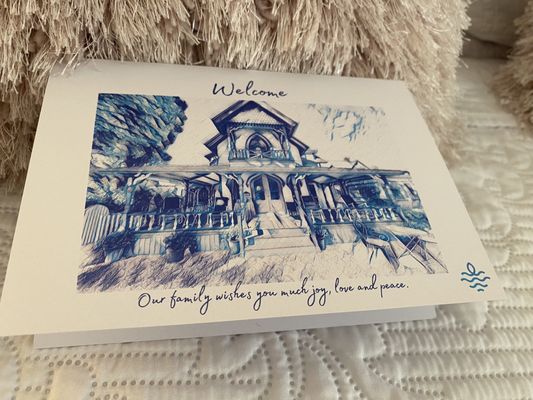 Welcome
Our family wishes you much joy, love and peace.